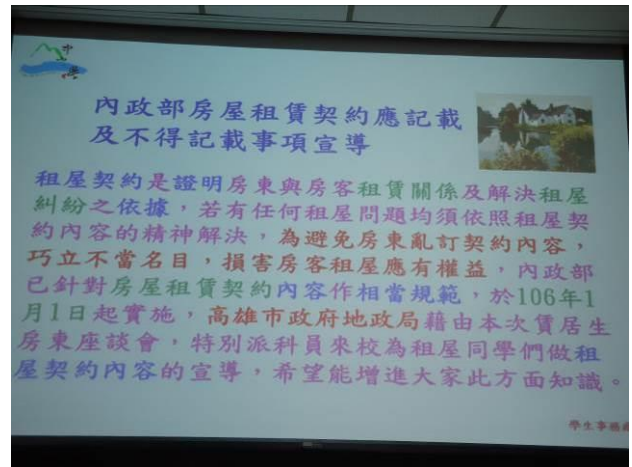 中
內政部房屋租賃契約應記載
及不得記載事項宣導
租屋契約是證明房東與房客租賃關係及解決租屋
糾紛之依據，若有任何租屋問題均須依照租屋契
約內容的精神解決，為避免房東亂訂契約內容，
巧立不當名目，損害房客租屋應有權益，內政部
已針對房屋租賃契約內容作相當規範，於106年1
月1日起實施，高雄市政府地政局藉由本次賃居生
房東座談會，特別派科員來校為租屋同學們做租
屋契約內容的宣導，希望能增進大家此方面知識。
學生事務處